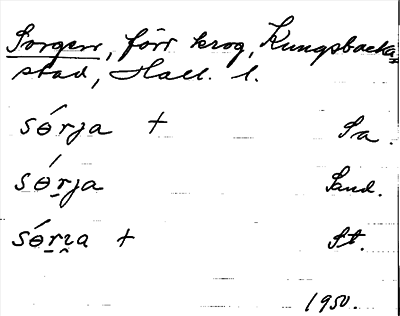 Sorgen, förr krog, Kungsbacka
stad, Hall. l.
sórja + Sa.
sórja Sand.
sórʅa + St.
1950.